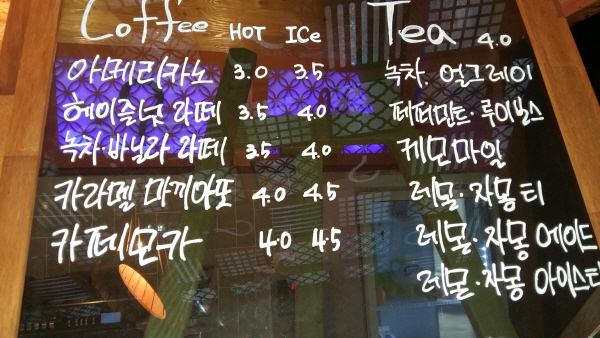 Coffee HOT ICe
아메리카노 3.0 3.5
헤이즐넛 라떼 3.5 4.0
녹차·바닐라 라떼 3.5 4.0
카라멜 마끼아또 4.0 4.5
카페모카 4.0 4.5
Tea 4.0
녹차. 얼그레이
페퍼민트·루이보스
케모마일
레몬·자몽티
레몬·자몽에이드
레몬·자몽 아이스티